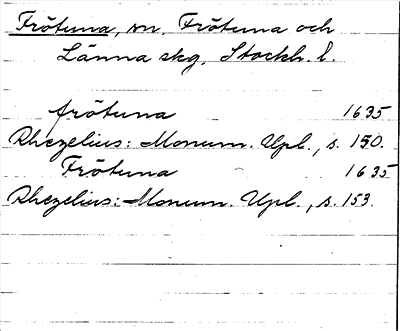 Frötuna, sn. Frötuna och
Länna skg, Stockh. l.
frötuna 1635
Rhezelius: Monum. Upl., s. 150.
Frötuna 1635
Rhezelius: Monum. Upl., s. 153.